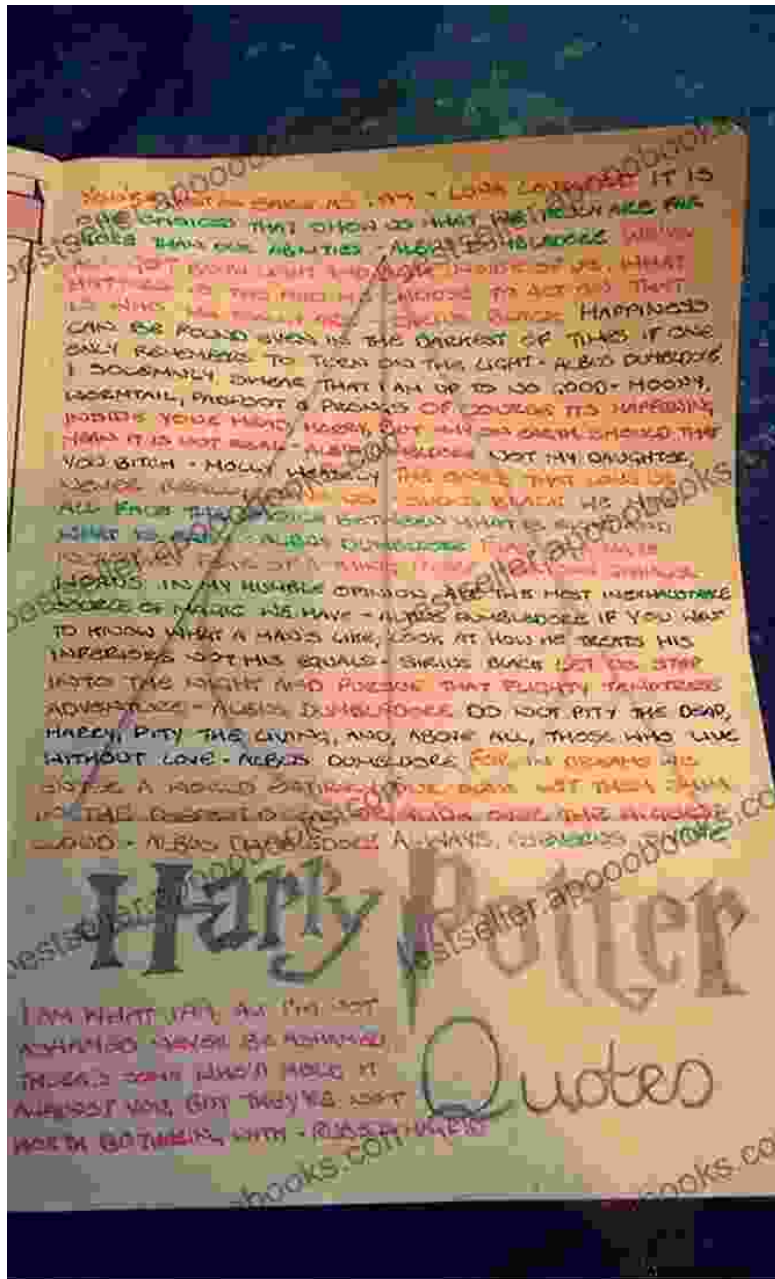 YOU'RE JUST AS SANE AS I AM - LUNA LOVEGOOD IT IS
OUR CHOICES THAT SHOW US WHAT WE TRULY ARE FAR
MORE THAN OUR ABILITIES - ALBUS DUMBLEDORE WE'VE
ALL GOT BOTH LIGHT AND DARK INSIDE OF US. WHAT
MATTERS IS THE PART WE CHOOSE TO ACT ON THAT
IS WHO WE REALLY ARE - SIRIUS BLACK HAPPINESS
CAN BE FOUND EVEN IN THE DARKEST OF TIMES IF ONE
ONLY REMEMBERS TO TURN ON THE LIGHT - ALBUS DUMBLEDORE,
I SOLEMNLY SWEAR THAT I AM UP TO NO GOOD - MOONY,
WORMTAIL, PADFOOT & PRONGS OF COURSE ITS HAPPENING
INSIDE YOUR HEAD, HARRY, BUT WHY ON EARTH SHOULD THAT
MEAN IT IS NOT REAL - ALBUS DUMBLEDORE NOT MY DAUGHTER,
YOU BITCH - MOLLY WEASLEY THE ONES THAT LOVE US
NEVER REALLY LEAVE US - SIRIUS BLACK WE MUST
ALL FACE THE CHOICE BETWEEN WHAT IS RIGHT AND
WHAT IS EASY - ALBUS DUMBLEDORE
WORDS IN MY HUMBLE OPINION, ARE THE MOST INEXHAUSTIBLE
SOURCE OF MAGIC WE HAVE - ALBUS DUMBLEDORE IF YOU WANT
TO KNOW WHAT A MAN'S LIKE, LOOK AT HOW HE TREATS HIS
INFERIORS NOT HIS EQUALS - SIRIUS BLACK LET US STEP
INTO THE NIGHT AND PURSUE THAT FLIGHTY TEMPTRESS
ADVENTURE - ALBUS DUMBLEDORE DO NOT PITY THE DEAD,
HARRY, PITY THE LIVING, AND, ABOVE ALL, THOSE WHO LIVE
WITHOUT LOVE - ALBUS DUMBLEDORE FOR IN DREAMS WE
ENTER A WORLD ENTIRELY OUR OWN LET THEM SWIM
IN THE DEEPEST OCEAN OR GLIDE OVER THE HIGHEST
CLOUD - ALBUS DUMBLEDORE ALWAYS, SEVERUS SNAPE
Harry Potter
Quotes
I AM WHAT I AM, AN' I'M NOT
ASHAMED NEVER BE ASHAMED
THERE'S SOME WHO'LL HOLD IT
AGAINST YOU, BUT THEY'RE NOT
WORTH BOTHERING WITH - RUBEUS HAGRID
bestseller.apooobooks.com